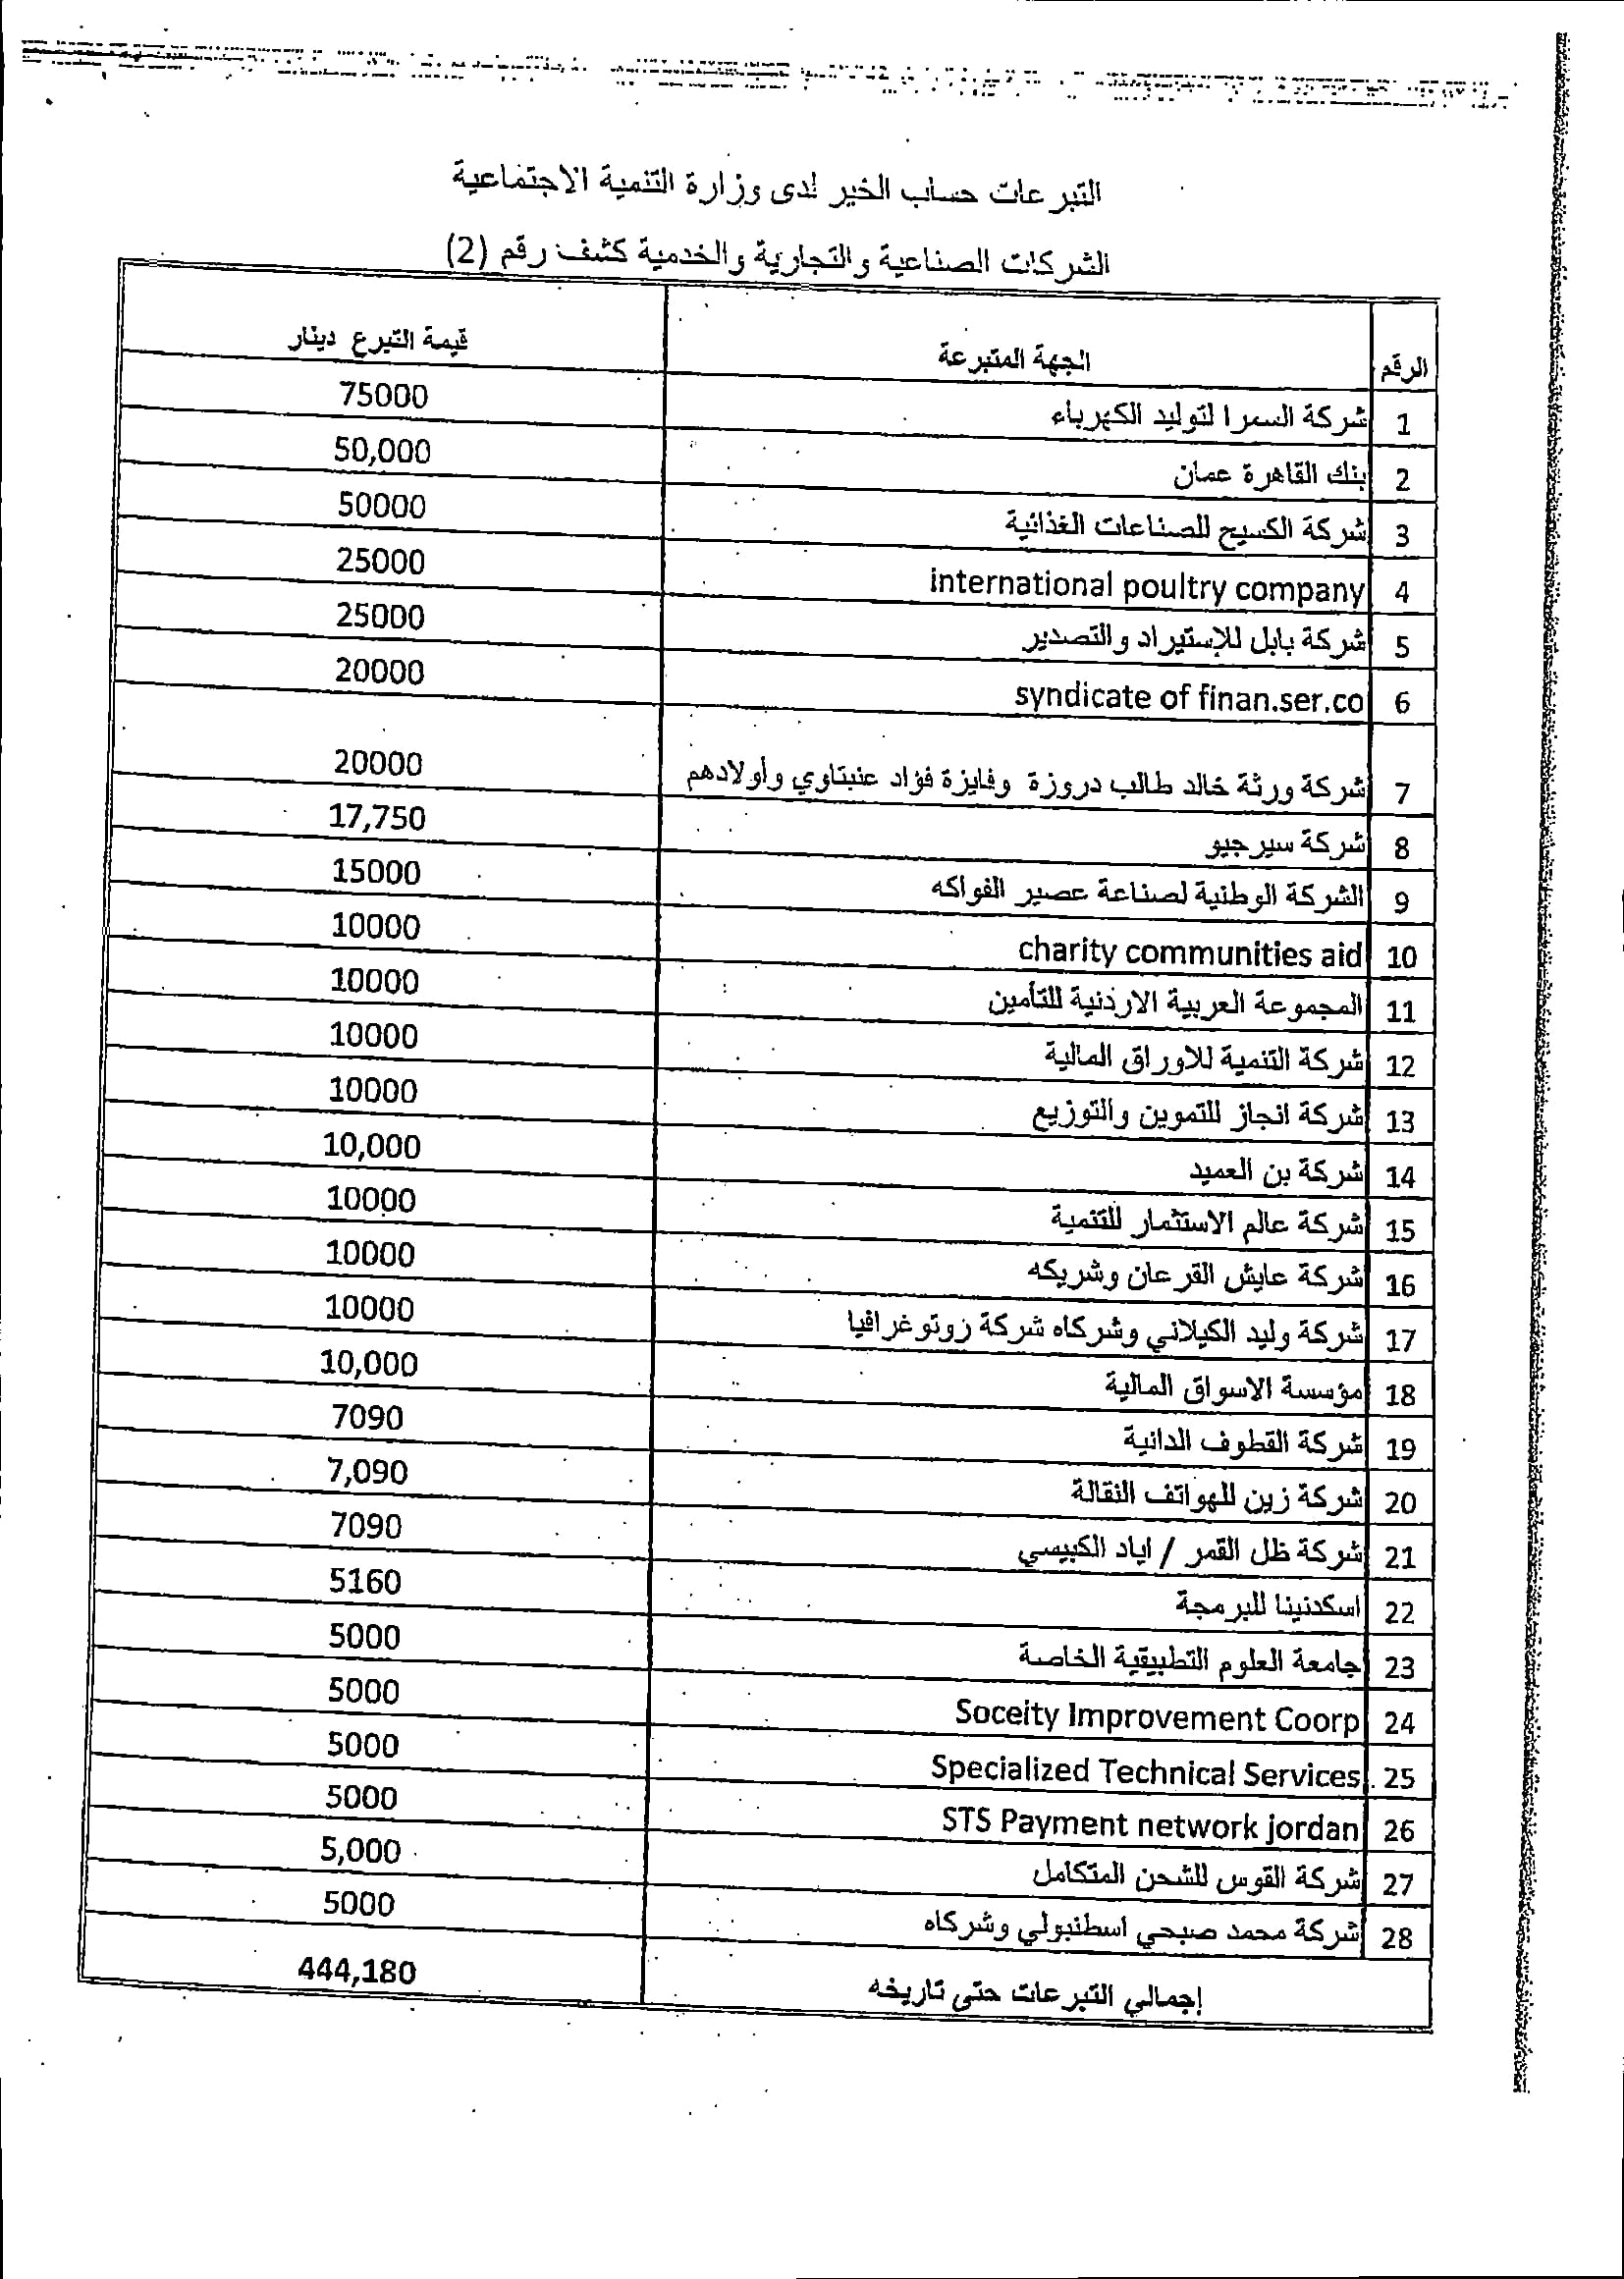 التبرعات حساب الخير لدى وزارة التنمية الاجتماعية
الشركات الصناعية والتجارية والخدمية كشف رقم (2)
الرقم الجهة المتبرعة قيمة التبرع دينار
1 شركة السمرا لتوليد الكهرباء 75000
2 بنك القاهرة عمان 50,000
3 شركة الكسيح للصناعات الغذائية 50000
4 international poultry company 25000
5 شركة بابل للإستيراد والتصدير 25000
6 syndicate of finan.ser.co 20000
7 شركة ورثة خالد طالب دروزة وفايزة فؤاد عنبتاوي وأولادهم 20000
8 شركة سيرجيو 17,750
9 الشركة الوطنية لصناعة عصير الفواكه 15000
10 charity communities aid 10000
11 المجموعة العربية الاردنية للتأمين 10000
12 شركة التنمية للاوراق المالية 10000
13 شركة انجاز للتموين والتوزيع 10000
14 شركة بن العميد 10,000
15 شركة عالم الاستثمار للتنمية 10000
16 شركة عايش القرعان وشريكه 10000
17 شركة وليد الكيلاني وشركاه شركة زوتوغرافيا 10000
18 مؤسسة الاسواق المالية 10,000
19 شركة القطوف الدانية 7090
20 شركة زين للهواتف النقالة 7,090
21 شركة ظل القمر / اياد الكبيسي 7090
22 اسكدنينا للبرمجة 5160
23 جامعة العلوم التطبيقية الخاصة 5000
24 Soceity Improvement Coorp 5000
25 Specialized Technical Services 5000
26 STS Payment network jordan 5000
27 شركة القوس للشحن المتكامل 5,000
28 شركة محمد صبحي اسطنبولي وشركاه 5000
إجمالي التبرعات حتى تاريخه 444,180